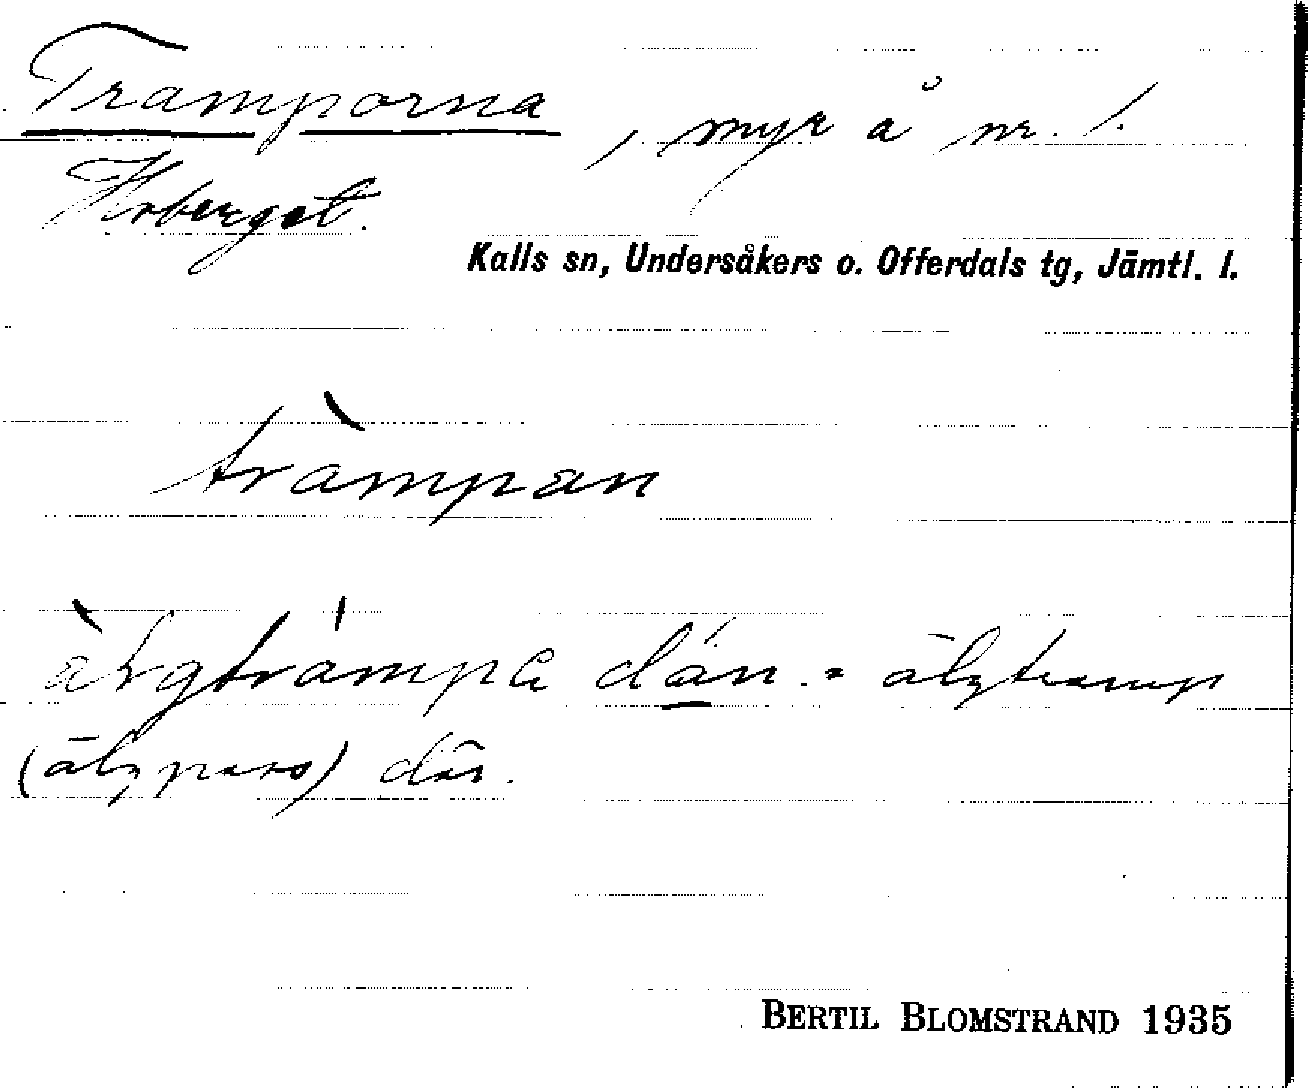 Tramporna, myr å nr. 1.
Kroberget.
Kalls sn, Undersåkers o. Offerdals tg, Jämtl. l.
tràmpan
trámpa dán. = älgtramp
(älgpass) där.
BERTIL BLOMSTRAND 1935